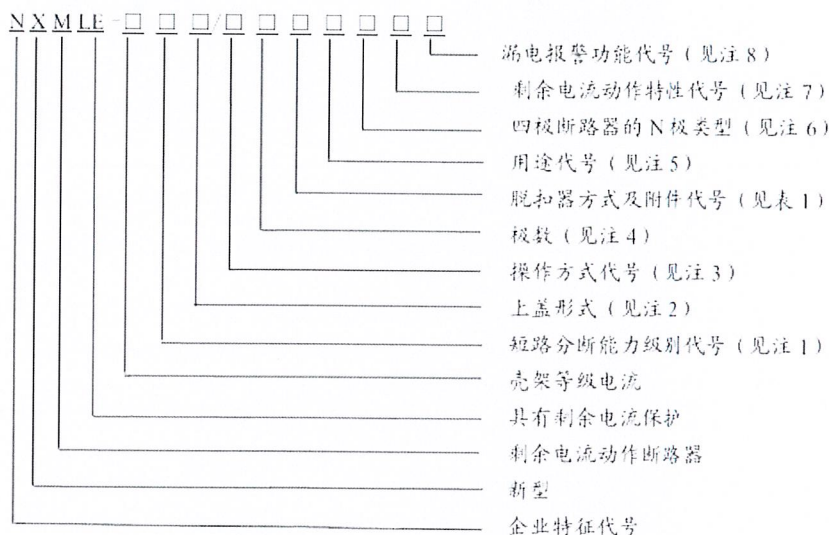 NXMLE-□□□/□□□□□□□
漏电报警功能代号(见注8)
剩余电流动作特性代号(见注7)
四极断路器的N极类型(见注6)
用途代号(见注5)
脱扣器方式及附件代号(见表1)
极数(见注4)
操作方式代号(见注3)
上盖形式(见注2)
短路分断能力级别代号(见注1)
壳架等级电流
具有剩余电流保护
剩余电流动作断路器
新型
企业特征代号